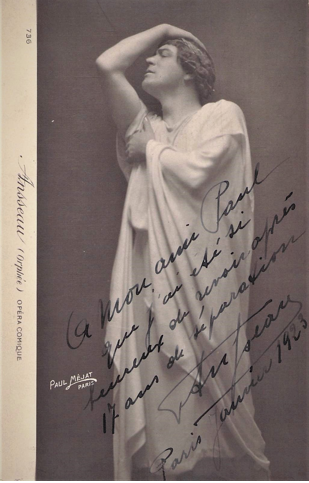 736
Ansseau (Orphée) OPÉRA COMIQUE
A mon ami Paul
que j'ai été si
heureux de revoir après
17 ans de séparation
F Ansseau
Paris Janvier 1923
PAUL MÉJAT
PARIS